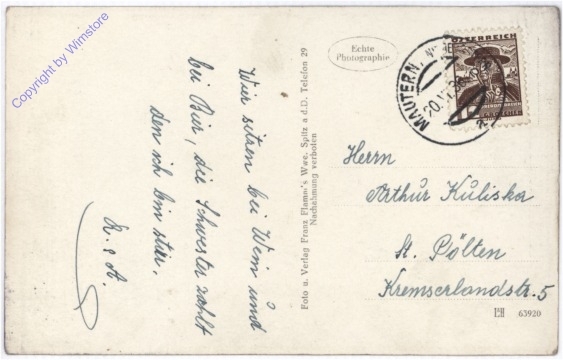 Copyright by Wimstore
Wir sitzen bei Wein und
bei Bier, die Schwester zahlt
den ich bin stier.
R. & A.
Foto u. Verlag Franz Flamm's Wwe. Spitz a d.D. Telefon 29
Nachahmung verboten
Echte
Photographie
ÖSTERREICH
MAUTERN,
20.
Herrn
Arthur Kuliska
St. Pölten
Kremserlandstr. 5
63920